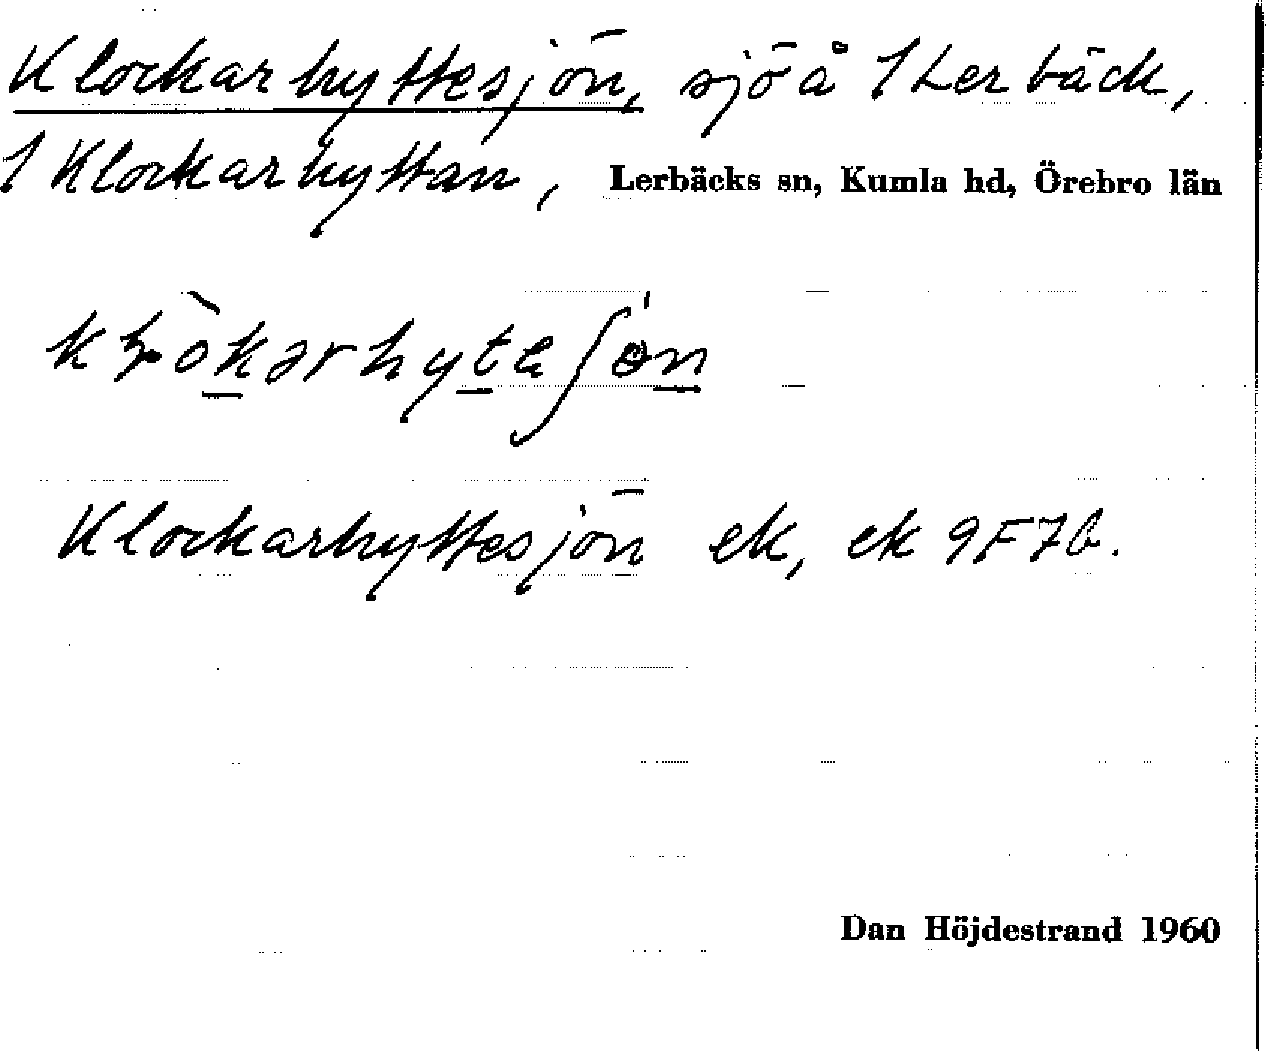 Klockarhyttesjön, sjö å 1 Lerbäck,
1 Klockarhyttan, Lerbäcks sn, Kumla hd, Örebro län
Klockarhyttesjön ek, ek 9F7b.
Dan Höjdestrand 1960